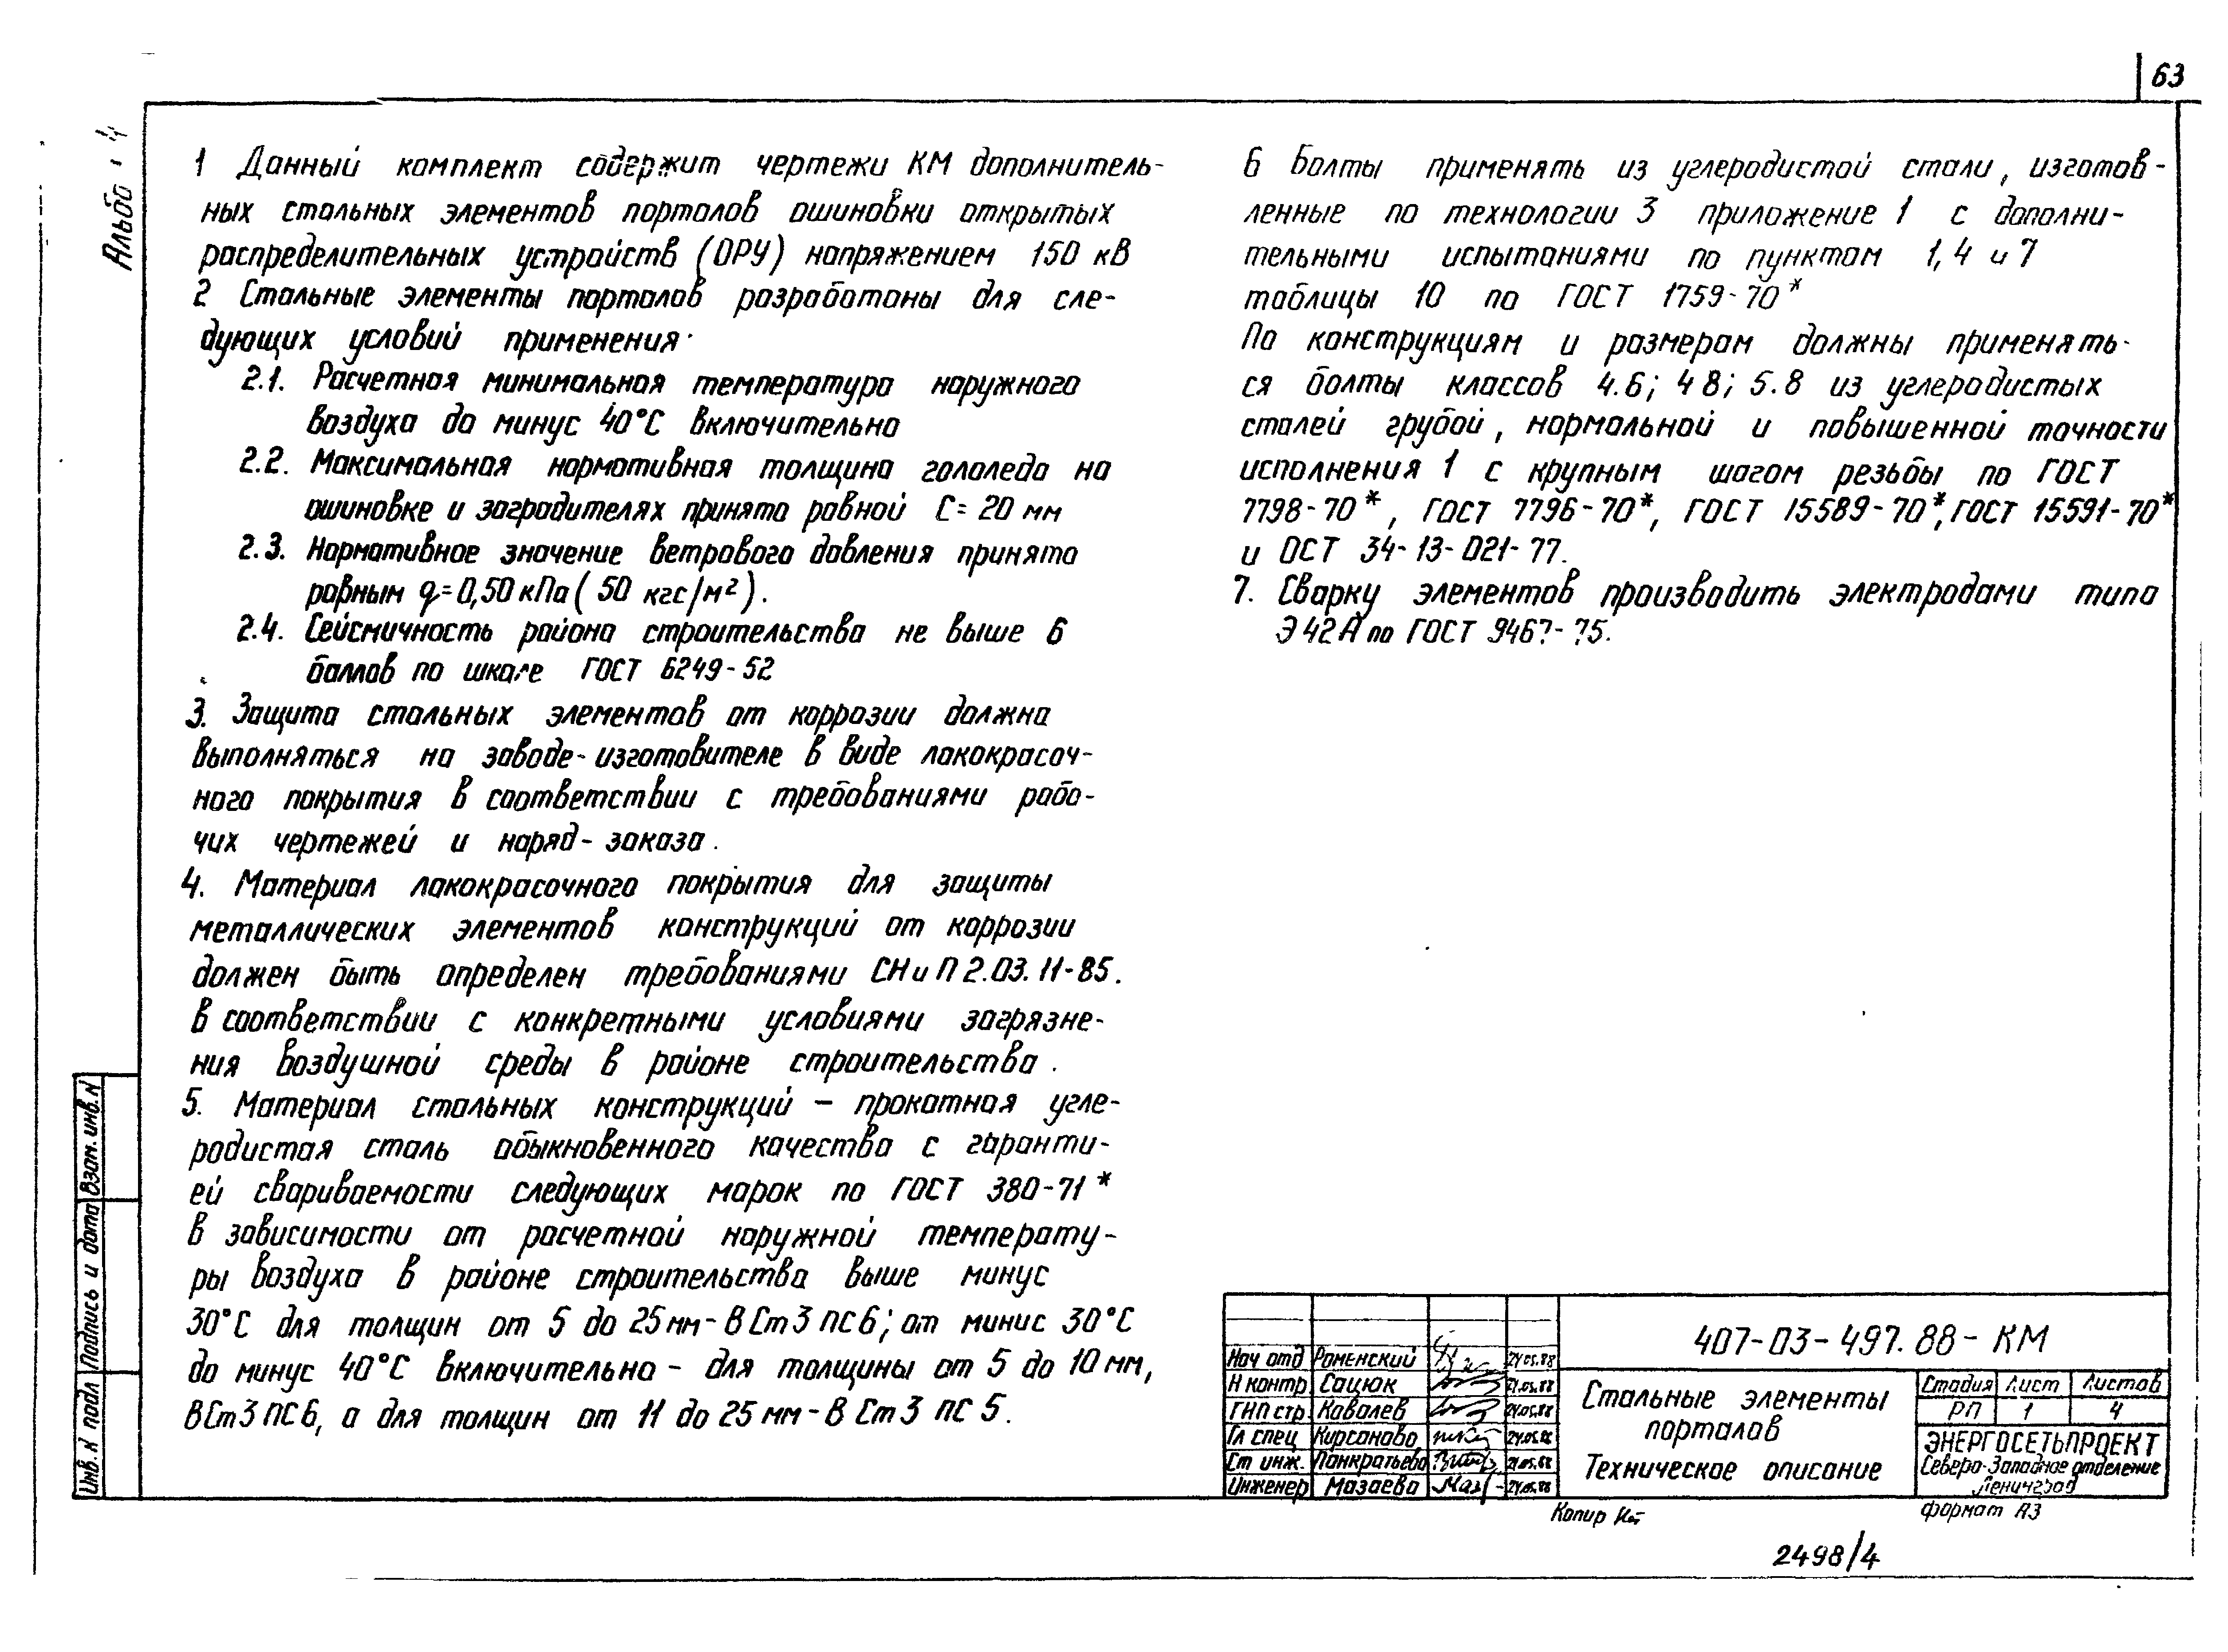 63
Альбо 4
1 Данный комплект содержит чертежи КМ дополнитель-
ных стальных элементов порталов ошиновки открытых
распределительных устройств (ОРУ) напряжением 150 кВ
2 Стальные элементы порталов разработаны для сле-
дующих условий применения·
2.1. Расчетная минимальная температура наружного
воздуха до минус 40°С включительно
2.2. Максимальная нормативная толщина гололеда на
ошиновке и заградителях принята равной С= 20 мм
2.3. Нормативное значение ветрового давления принято
равным q=0,50 кПа (50 кгс/м²).
2.4. Сейсмичность района строительства не выше 6
баллов по шкале ГОСТ 6249-52
3. Защита стальных элементов от коррозии должна
выполняться на заводе-изготовителе в виде лакокрасоч-
ного покрытия в соответствии с требованиями рабо-
чих чертежей и наряд-заказа.
4. Материал лакокрасочного покрытия для защиты
металлических элементов конструкций от коррозии
должен быть определен требованиями СНиП 2.03.11-85.
в соответствии с конкретными условиями загрязне-
ния воздушной среды в районе строительства.
5. Материал стальных конструкций – прокатная угле-
родистая сталь обыкновенного качества с гаранти-
ей свариваемости следующих марок по ГОСТ 380-71*
в зависимости от расчетной наружной температу-
ры воздуха в районе строительства выше минус
30°С для толщин от 5 до 25мм-ВСт3пс6; от минис 30°С
до минус 40°С включительно - для толщины от 5 до 10мм,
ВСт3ПС6, а для толщин от 11 до 25мм-ВСт3 ПС5.
6 Болты применять из углеродистой стали, изготов-
ленные по технологии 3 приложение 1 с дополни-
тельными испытаниями по пунктам 1,4 и 7
таблицы 10 по ГОСТ 1759-70*
По конструкциям и размерам должны применять-
ся болты классов 4.6; 4 8; 5.8 из углеродистых
сталей грубой, нормальной и повышенной точности
исполнения 1 с крупным шагом резьбы по ГОСТ
7798-70*, ГОСТ 7796-70*, ГОСТ 15589-70*, ГОСТ 15591-70*
и ОСТ 34-13-021-77.
7. Сварку элементов производить электродами типа
Э42А по ГОСТ 9467-75.
Взам. инв. N
Подпись и дата
Инв. N подл
407-03-497.88-КМ
Нач отд Роменский 24.05.88
Н контр Сацюк 24.05.88
ГИП стр Ковалев 24.05.88
Гл спец Кирсанова 24.05.88
Ст инж. Панкратьева 24.05.88
Инженер Мазаева 24.05.88
Стальные элементы
порталов
Техническое описание
Стадия Лист Листов
РП 1 4
ЭНЕРГОСЕТЬПРОЕКТ
Северо-Западное отделение
Ленинград
Копир
формат А3
2498/4